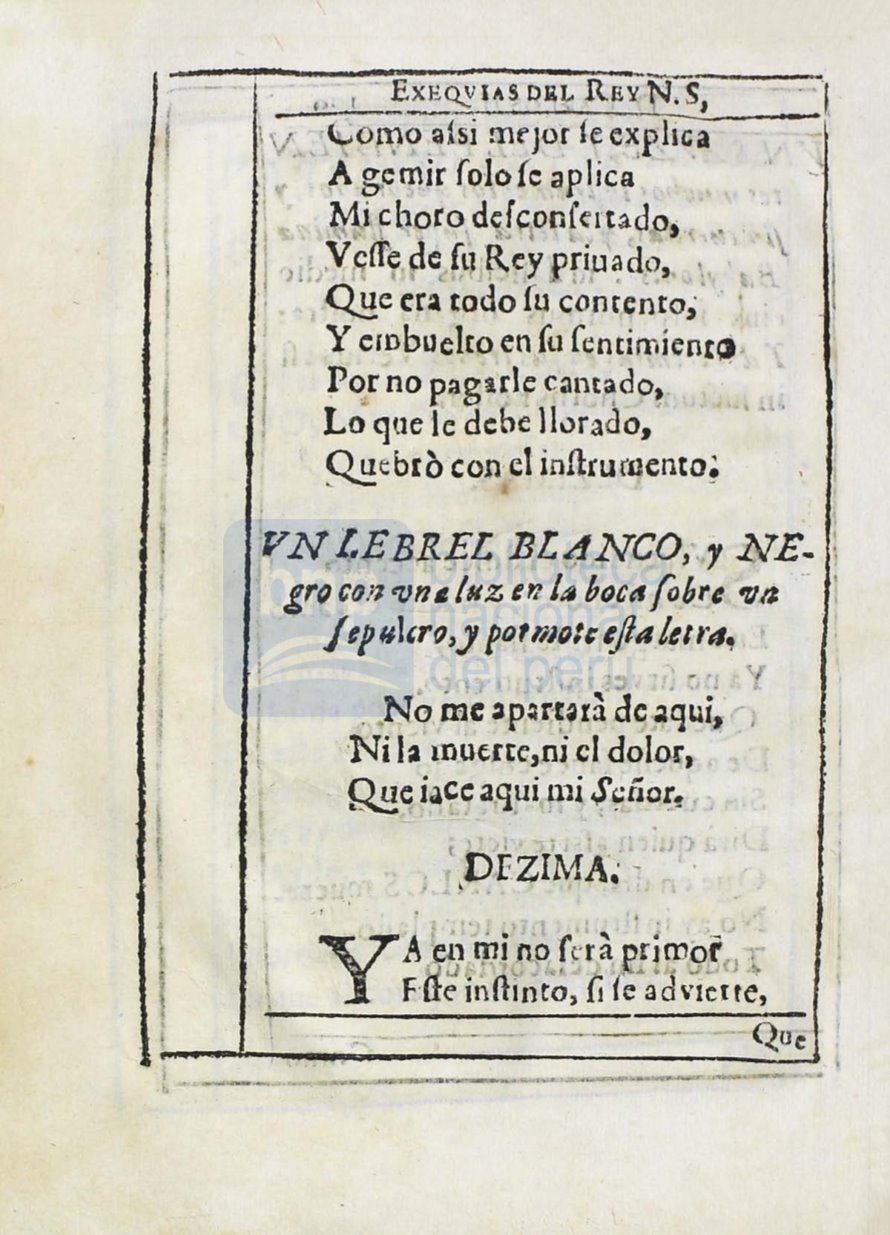 EXEQVIAS DEL REY N. S,
Como aſsi mejor ſe explica
A gemir ſolo ſe aplica
Mi choro deſconſertado,
Veſſe de ſu Rey priuado,
Que era todo ſu contento,
Y embuelto en ſu ſentimiento
Por no pagarle cantado,
Lo que le debe llorado,
Quebrò con el inſtrumento:
VN LEBREL BLANCO, y NE-
gro con vna luz en la boca ſobre vn
ſepulcro, y por mote eſta letra.
biblioteca
nacional
del perú
No me apartarà de aqui,
Ni la muerte, ni el dolor,
Que iace aqui mi Señor.
DEZIMA.
YA en mi no ſerà primor
Eſte inſtinto, ſi ſe advierte,
Que